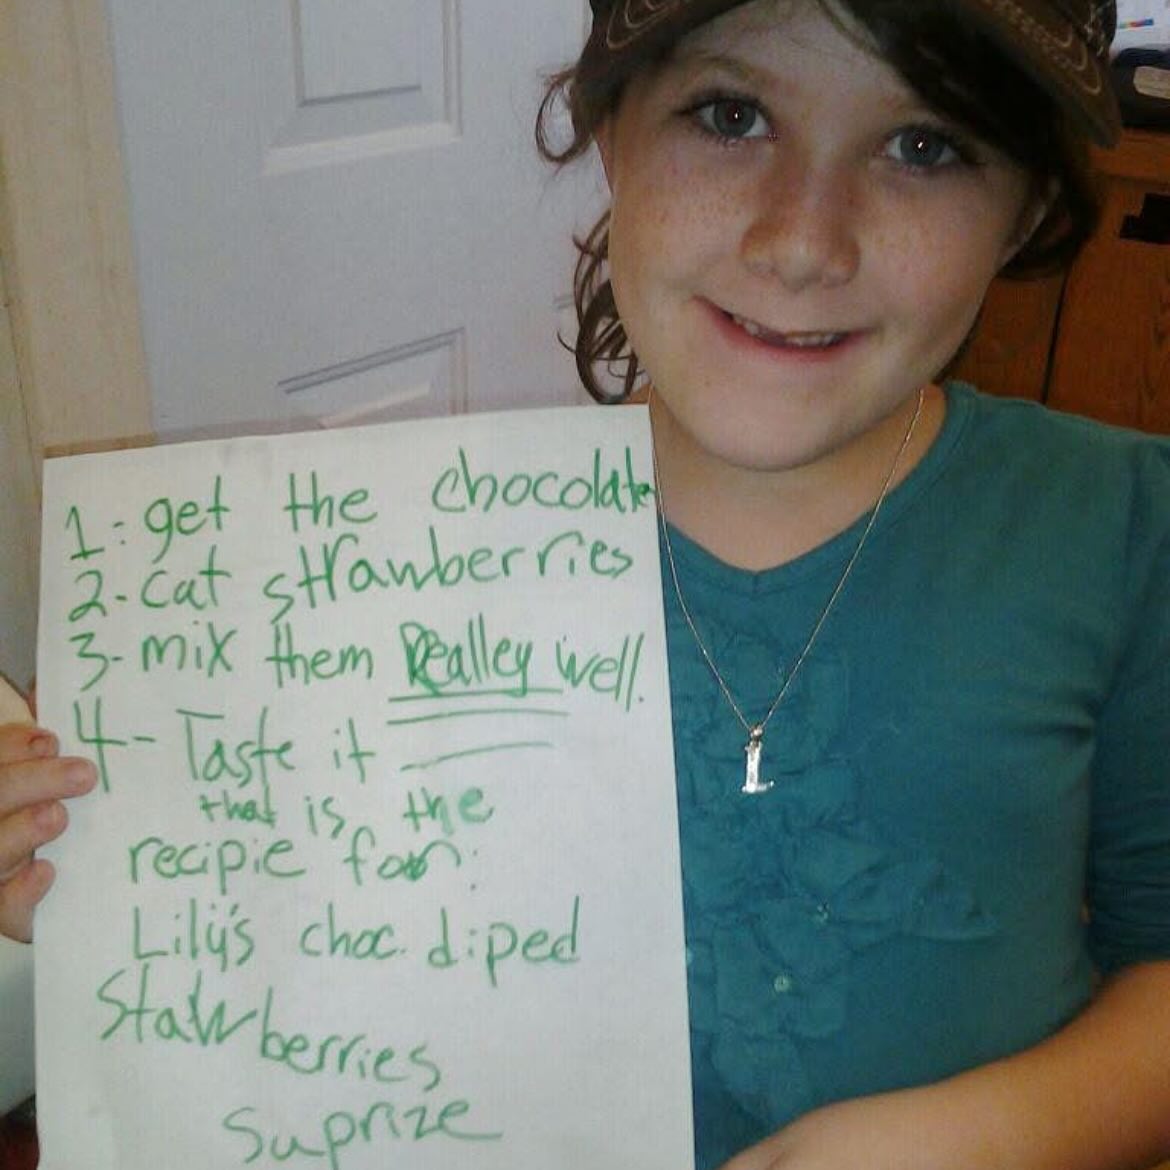 1: get the chocolate
2- cat strawberries
3- mix them Realley well.
4- Taste it
that is the
recipie for:
Lily's choc. diped
Stawberries
Suprize
L